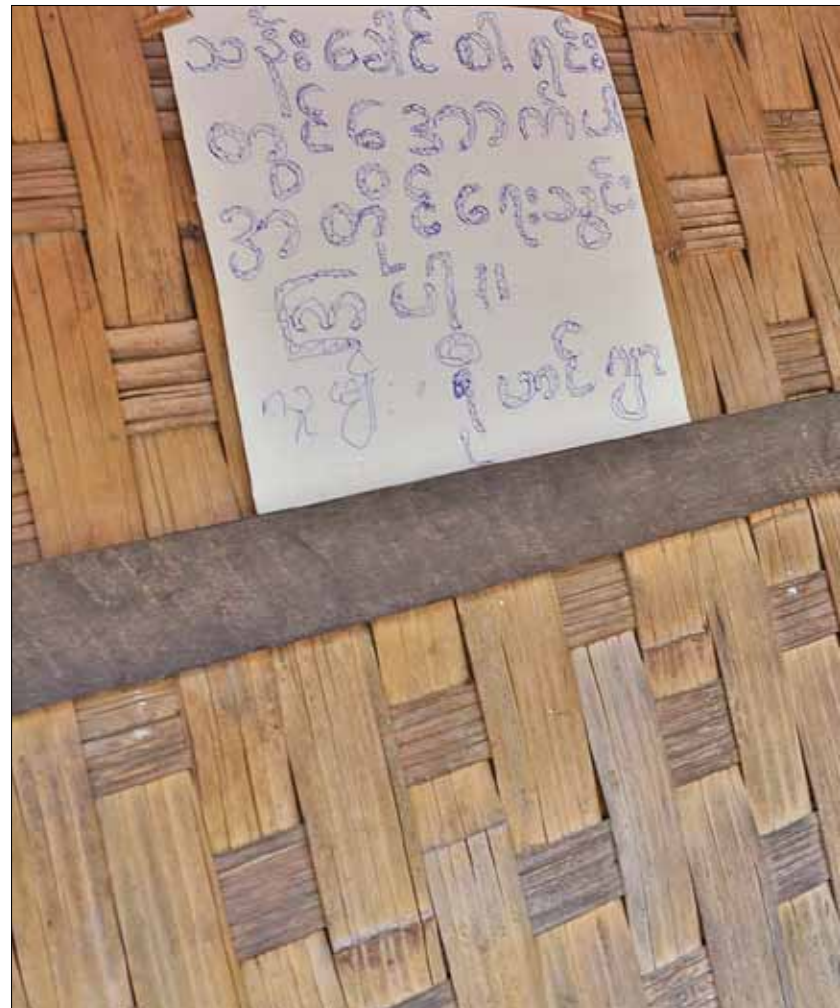 သန်းခေါင်စာရင်း
တွင်အောက်ပါ
အတိုင်ရေးသွင်း
ကြပါ။
လူမျိုး ရိုဟင်ဂျာ